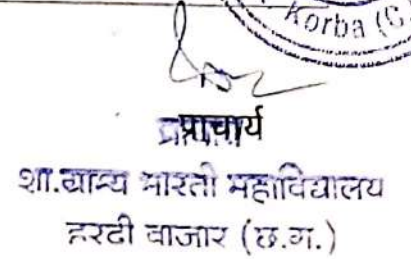 Korba (C.
प्राचार्य
शा.ग्राम्य भारती महाविद्यालय
हरदी बाजार (छ.ग.)